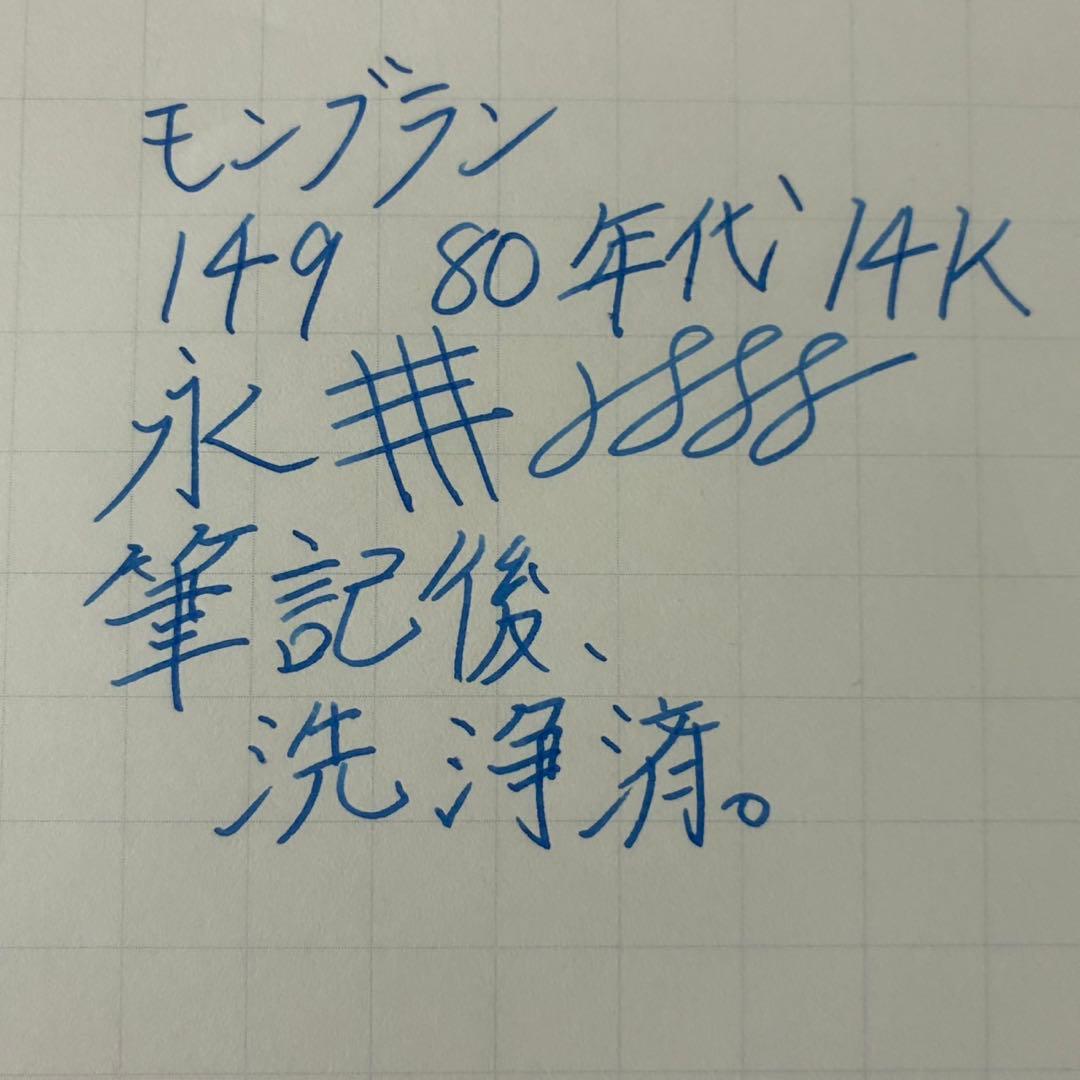 モンブラン
149 80年代 14K
永
筆記後、
洗浄済。